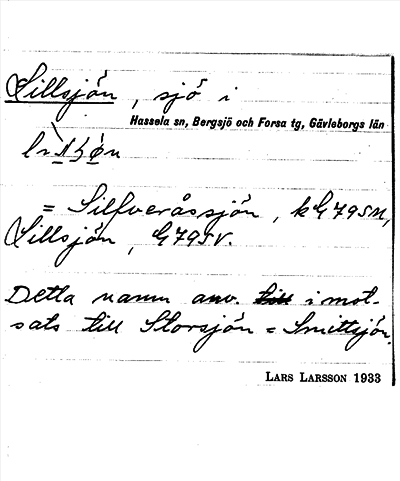 Lillsjön, sjö i
Hassela sn, Bergsjö och Forsa tg, Gävleborgs län
= Silfveråssjön, kG795N,
Lillsjön, G795V.
Detta namn anv. till i mot-
sats till Storsjön = Smittsjön.
LARS LARSSON 1933